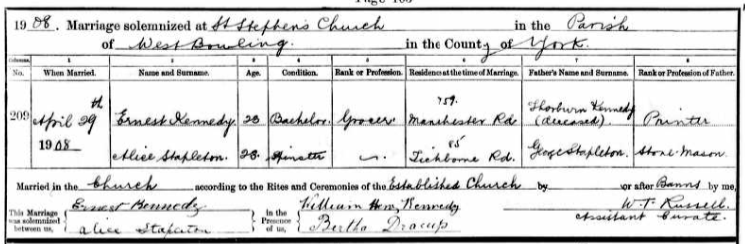 1908. Marriage solemnized at St Stephen's Church in the Parish
of West Bowling. in the County of York.
Columns. 1 2 3 4 5 6 7 8
No. When Married. Name and Surname. Age. Condition. Rank or Profession. Residence at the time of Marriage. Father's Name and Surname. Rank or Profession of Father.
209 April 29th 1908 Ernest Kennedy. 23 Bachelor. Grocer. 759. Manchester Rd Thorburn Kennedy (deceased) Printer
Alice Stapleton. 23. Spinster 85 Tichborne Rd. George Stapleton. Stone-Mason.
Married in the Church according to the Rites and Ceremonies of the Established Church by or after Banns by me,
This Marriage was solemnized between us, Ernest Kennedy Alice Stapleton In the Presence of us, William Kennedy Bertha Dracup W. T. Russell. Assistant Curate.